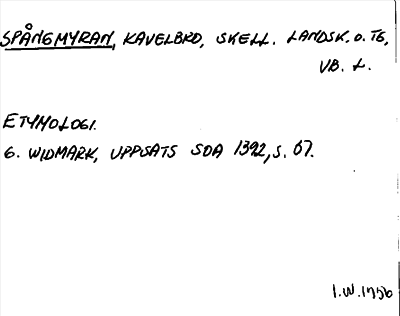 SPÅNGMYRAN, KAVELBRO, SKELL. LANDSK. O. TG,
VB. L.
ETYMOLOGI.
G. WIDMARK, UPPSATS SOA 1392, S. 67.
I.W. 1956